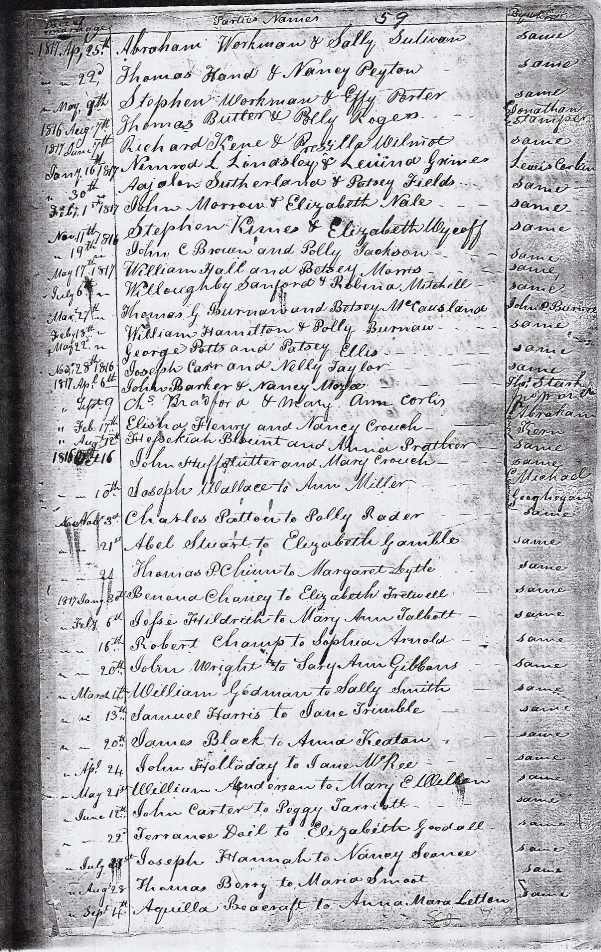 Date of marriage Parties Names 59 By whom
1817 Ap, 25th Abraham Workman & Sally Sulivan same
" " 22d Thomas Hand & Nancy Peyton same
" May 9th Stephen Workman & Effy Porter same
1816 Aug 7th Thomas Butler & Polly Rogers Jonathan Stamper
1817 June 7th Richard Kene & Wilmot same
Jany 16th 1817 Nimrod L Lindsley & Grimes Lewis Corbin
" 30th Sutherland & Patsey Fields same
Feby 1st 1817 John Morrow & Elizabeth Nale same
Nov 17th 1816 Stephen Kimes & Elizabeth Wycoff same
" 19th " John C Brown and Polly Jackson same
May 17th 1817 William Hall and Betsey Morris same
July 6th " Willoughby Sanford & Robina Mitchell same
Mar 27th " Thomas G Burnaw and Betsey McCausland John
Feby 18th " William Hamilton & Polly Burnaw same
May 22 " George Potts and Patsey Ellis same
Nov 28th 1816 Joseph Carr and Nelly Taylor same
1817 Apl 6th John Barker & Nancy Stark
" Sept 9 Chs Bradford & Mary Ann Corlis
" Feb 17th Elisha Henry and Nancy Crouch Abraham Kern
" Aug 12th Hessekiah Blount and Anna Prather same
1816 Oct 16 John Huffstutter and Mary Crouch same
" " 10th Joseph Wallace to Ann Miller Michael Geoghegan
" Nov 3d Charles Patton to Polly Rader same
" " 21st Abel Stuart to Elizabeth Gamble same
24 Thomas P Chinn to Margaret Lytle same
1817 Jany 30th Benond Chaney to Elizabeth Fretwell same
" Feby 6th Jesse Hildrith to Mary Ann Talbott same
" " 16th Robert Champ to Sophia Arnold same
" " 20th John Wright to Sary Ann Gibbons same
" March 4th William Godman to Sally Smith same
" " 13th Samuel Harris to Jane Trimble same
" " 20th James Black to Anna Keaton same
" Apl 24 John Holladay to Jane McKee same
" May 21st William Anderson to Mary E same
" June 12th John Carter to Peggy Tarriott same
" " 22d Torrance Doil to Elizabeth Goodall same
" July Joseph Hannah to Nancy Scance same
" Aug 28 Thomas Berry to Maria Smoot same
" Sept 4th Aquilla Beacraft to Anna Mara Letton same